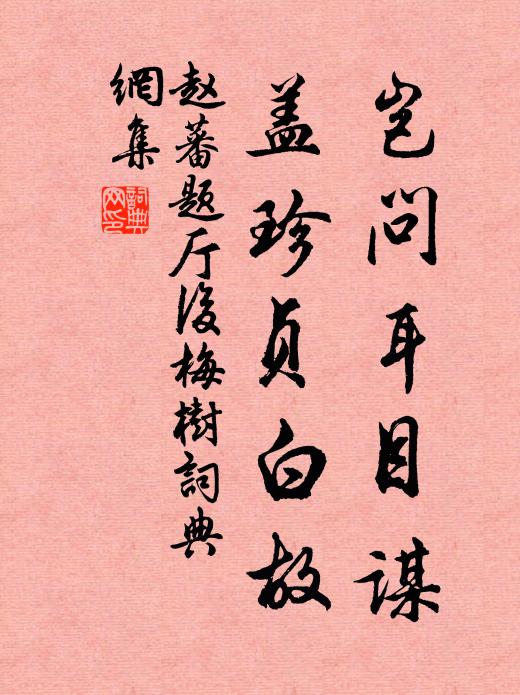 岂问耳目谋
盖珍贞白故
赵蕃题厅后梅樹詞典
網集
詞典
网印